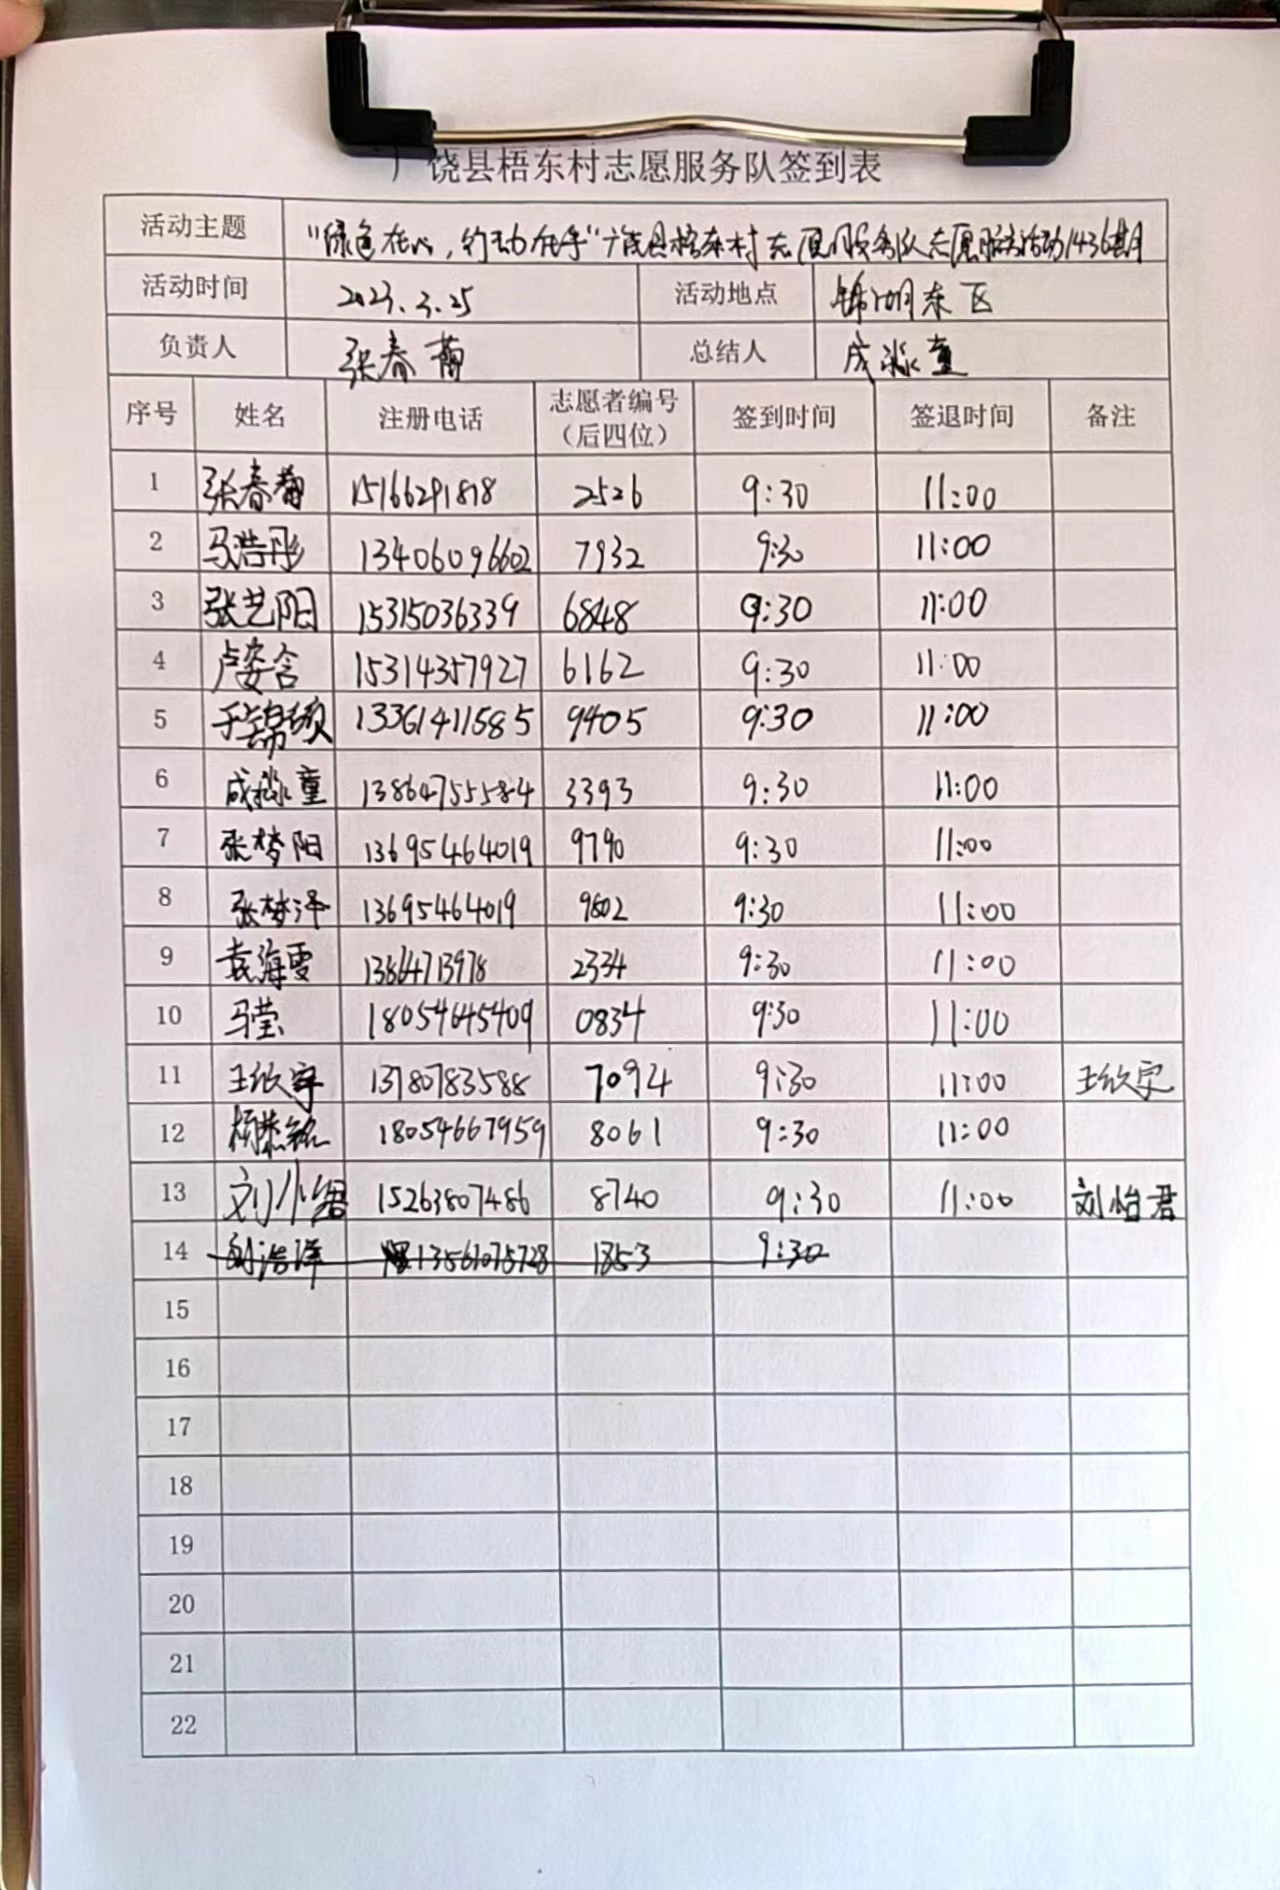 广饶县梧东村志愿服务队签到表
活动主题 "绿色在心，行动在手"广饶县梧东村志愿服务队志愿服务活动1436期
活动时间 2023.3.25 活动地点 锦湖东区
负责人 张春菊 总结人 成淼童
序号 姓名 注册电话 志愿者编号（后四位） 签到时间 签退时间 备注
1 张春菊 15166291818 2526 9:30 11:00
2 马浩彤 13406096602 7932 9:30 11:00
3 张艺阳 15315036339 6848 9:30 11:00
4 卢姿含 15314357927 6162 9:30 11:00
5 于锦硕 13361411585 9405 9:30 11:00
6 成淼童 13864755584 3393 9:30 11:00
7 张梦阳 13695464019 9790 9:30 11:00
8 张梦泽 13695464019 9602 9:30 11:00
9 袁海雯 13864713978 2334 9:30 11:00
10 马莹 18054645409 0834 9:30 11:00
11 王欣宇 13780783588 7094 9:30 11:00 王欣宇
12 杨懿铭 18054667959 8061 9:30 11:00
13 刘怡君 15263807486 8740 9:30 11:00 刘怡君
14 刘浩泽 13561075728 1853 9:30
15
16
17
18
19
20
21
22